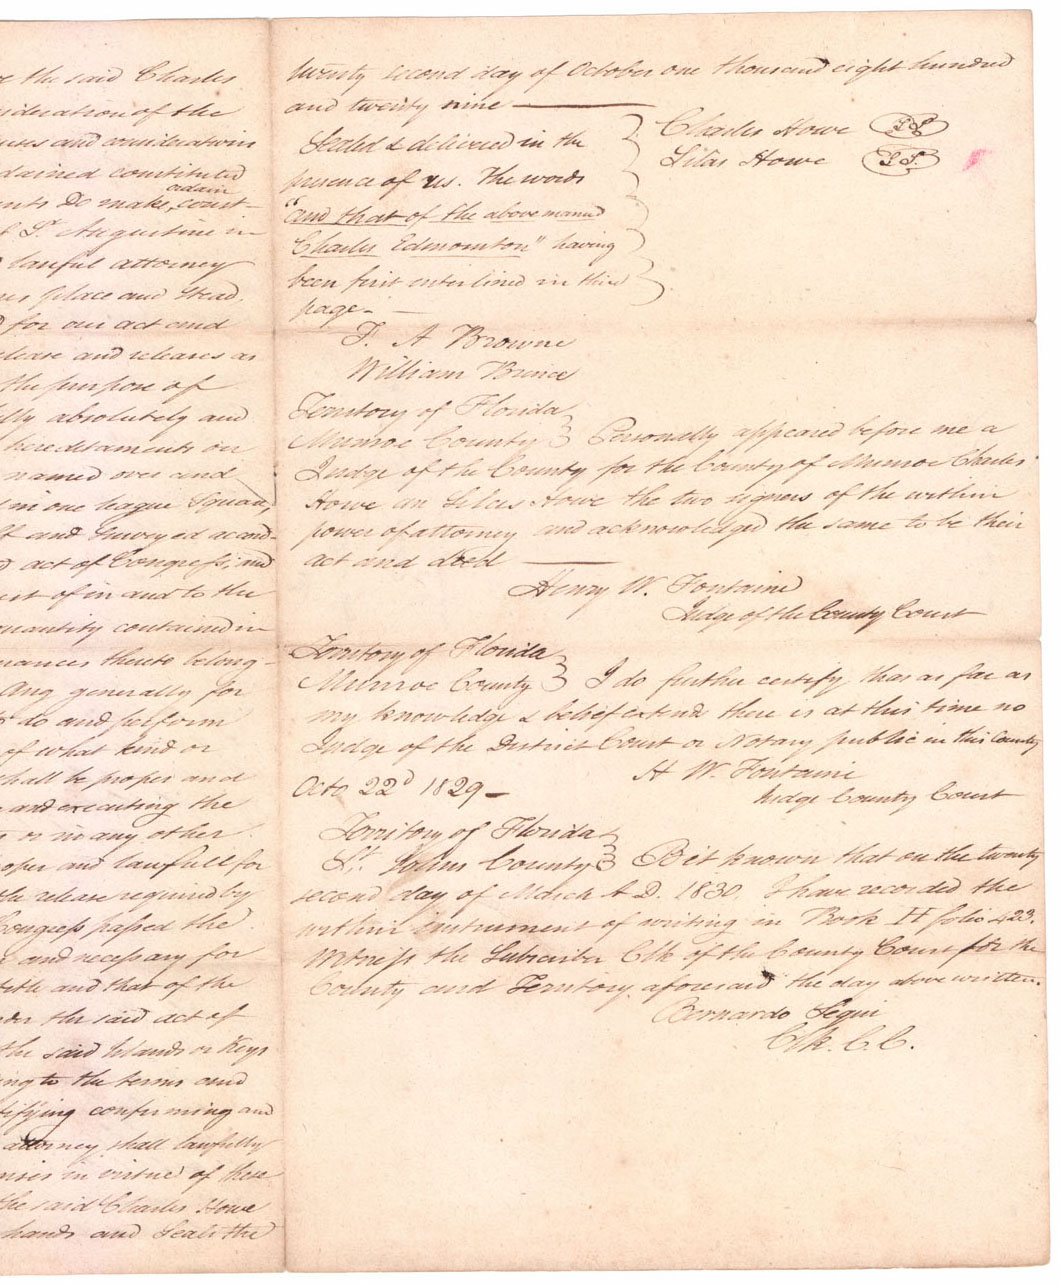 the said Charles
sideration of the
uses and considerations
dained constituted
ordain
nts Do make, const-
St. Augustine in
lawful attorney
place and Stead.
for our act and
lease and releases as
the purpose of
lly absolutely and
heredetaments on
named over and
in one league Square,
and Surveyed accord-
act of Congress, and
of in and to the
quantity contained in
nances thereto belong-
Ang generally for
do and perform
of what kind or
shall be proper and
and executing the
or no any other
oper and lawfull for
release required by
Congress passed the
and necessary for
title and that of the
under the said act of
the said Islands or Keys
ing to the terms and
tifying confirming and
attorney shall lawfully
mises in virtue of these
the said Charles Howe
hands and Seals the
twenty second day of October one thousand eight hundred
and twenty nine
Charles Howe L.S.
Silas Howe L.S.
Sealed & delivered in the
presence of us. The words
"and that of the above named
Charles Edmonston" having
been first interlined in third
page.
F. A Browne
William Bunce
Territory of Florida
Munroe County Personally appeared before me a
Judge of the County for the County of Munroe Charles
Howe an Silas Howe the two signers of the within
power of attorney and acknowledged the same to be their
act and deed
Henry W. Fontaine
Judge of the County Court
Territory of Florida
Munroe County I do further certify that as far as
my knowledge & belief extends there is at this time no
Judge of the District Court or Notary public in this County
Octo 22d 1829
H W. Fontaine
Judge County Court
Territory of Florida
St. Johns County Be it known that on the twenty
second day of March A D. 1830. I have recorded the
within instrument of writing in Book H folio 423.
Witness the Subscriber Clk of the County Court for the
County and Territory aforesaid the day above written.
Bernardo Segui
Clk. C. C.